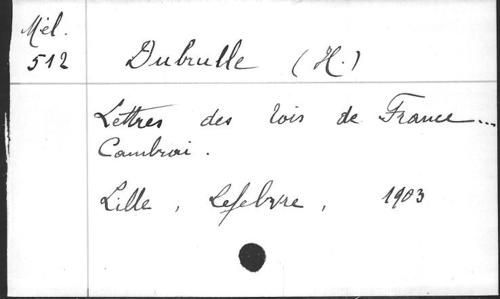 Mél.
512
Dubrulle (H.)
Lettres des rois de France...
Cambrai.
Lille, Lefebvre, 1903